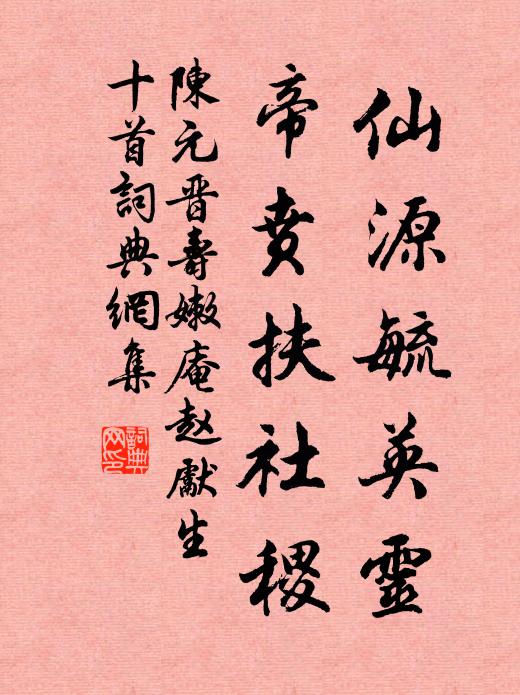 仙源毓英靈
帝賁扶社稷
陳元晋壽嫩庵赵獻生
十首詞典網集
詞典
网印